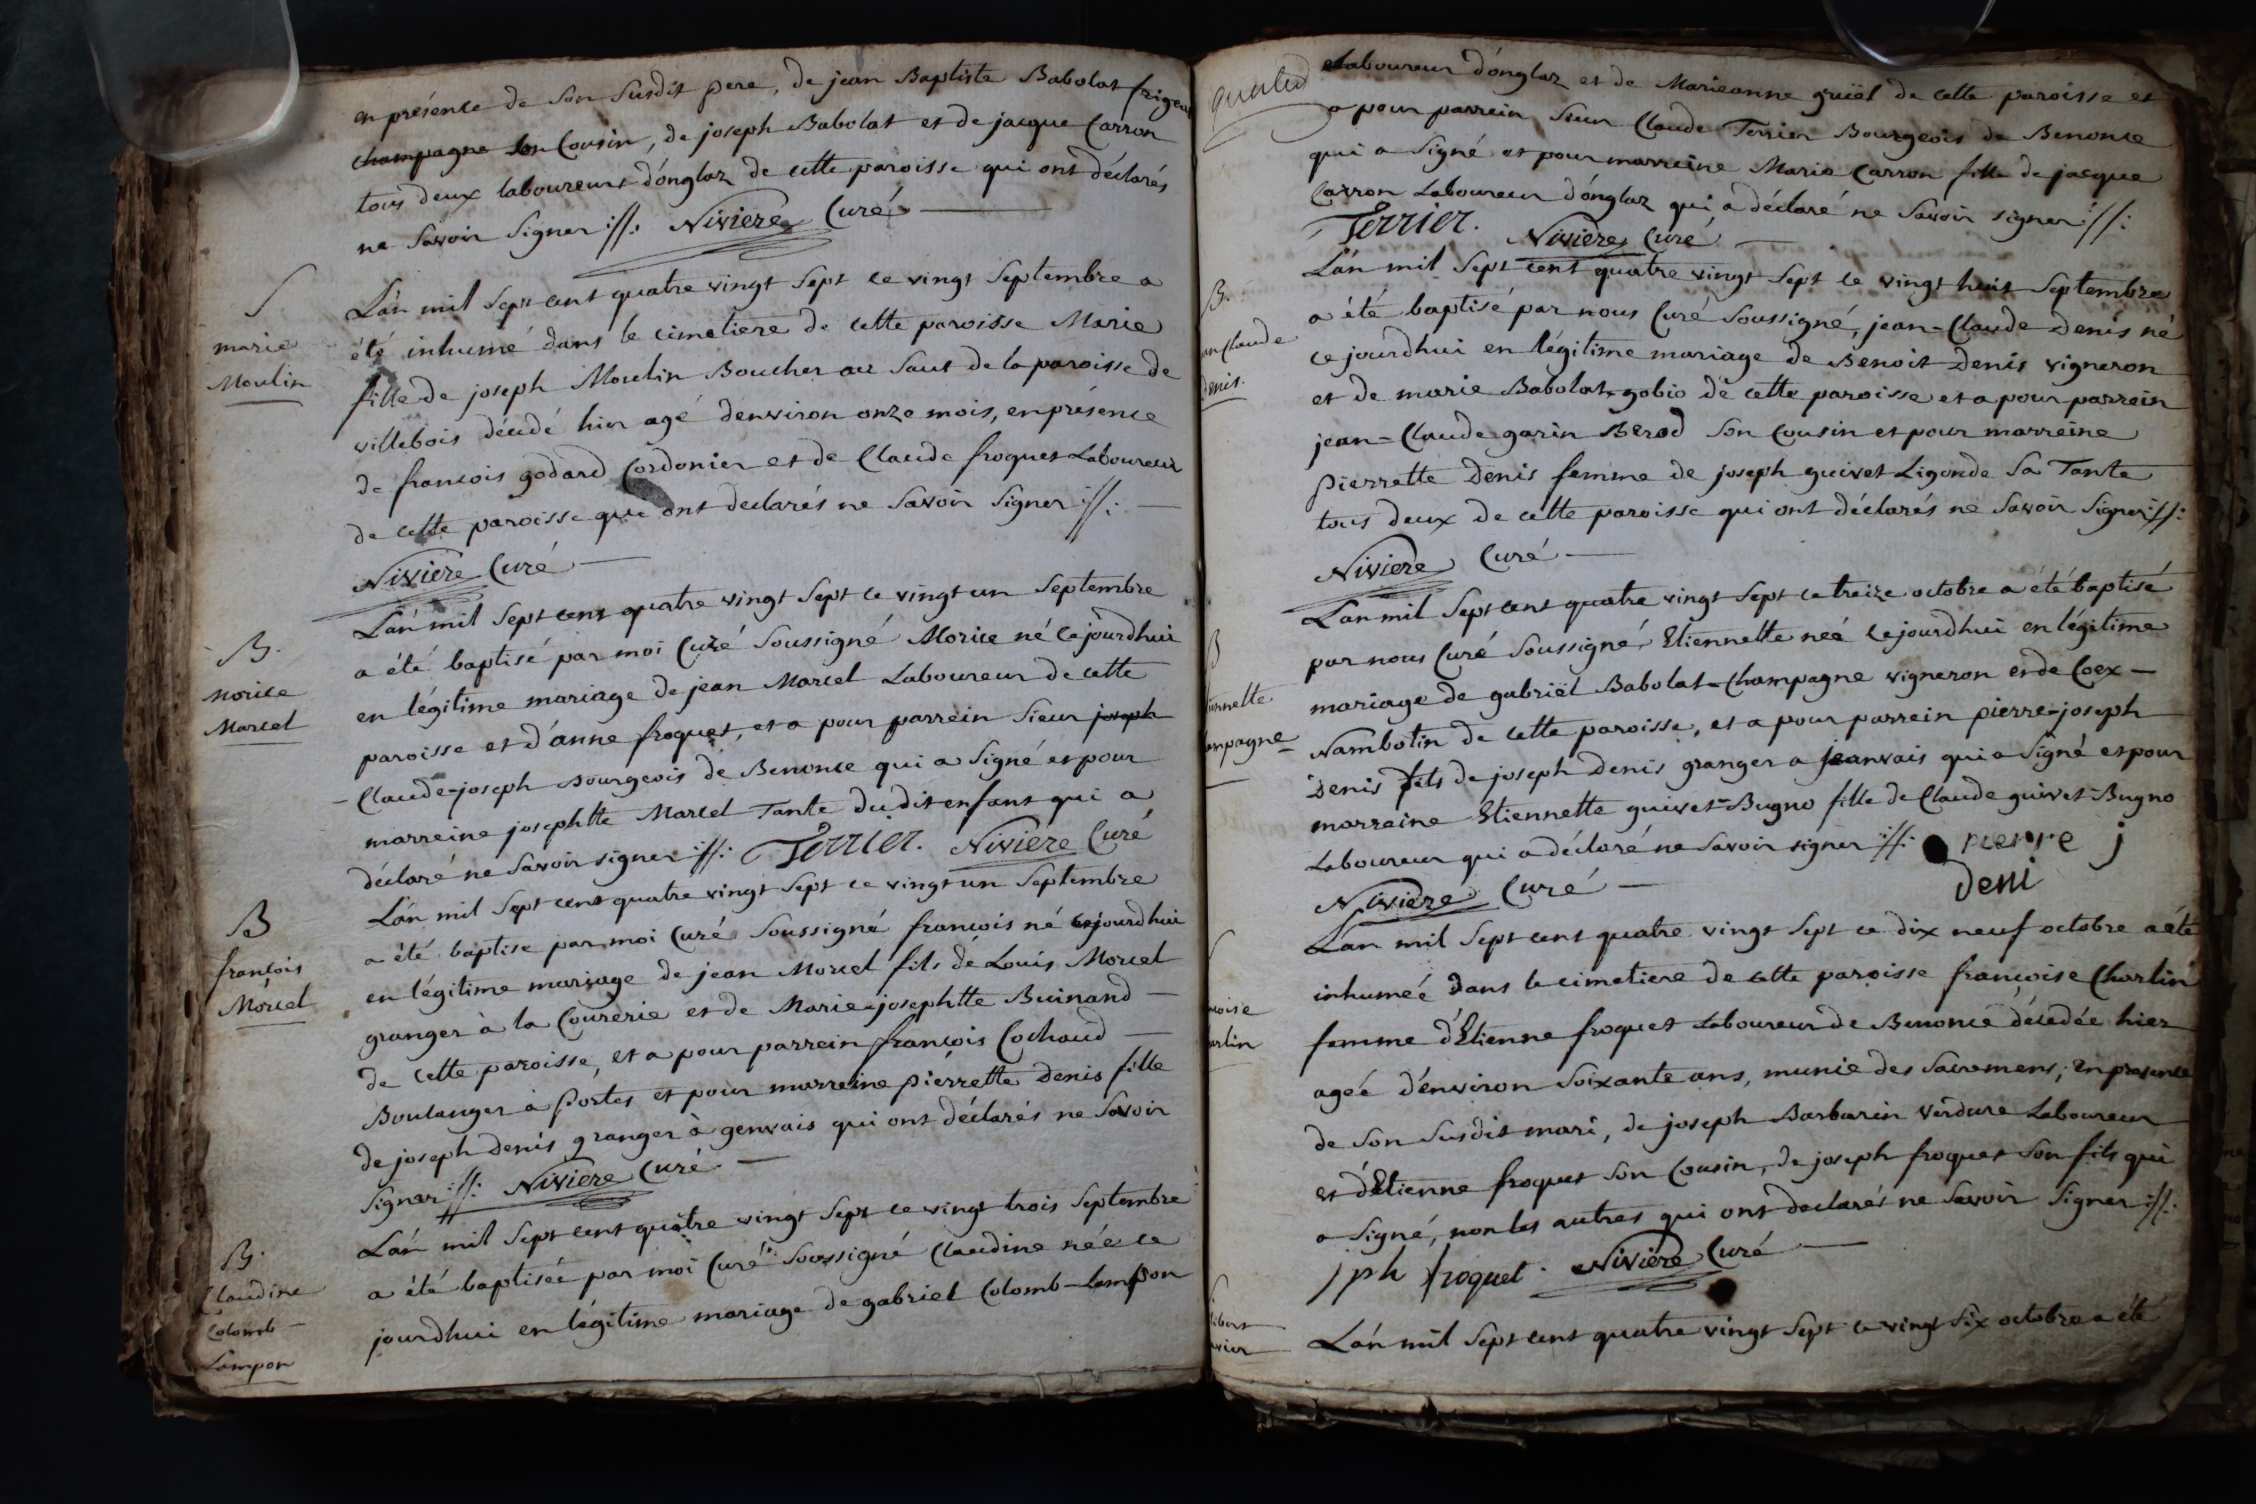 en présence de son susdit pere, de jean Baptiste Babolat frigeau
champagne son Cousin, de joseph Babolat et de jacque Carron
tous deux laboureurs d'onglaz de cette paroisse qui ont déclarés
ne savoir signer :||: Niviere Curé
S
marie
Moulin
L'an mil sept cent quatre vingt sept le vingt septembre a
été inhumé dans le cimetiere de cette paroisse Marie
fille de joseph Moulin Boucher au Saut de la paroisse de
villebois décédé hier agé d'environ onze mois, en présence
de francois godard Cordonier et de Claude froquet Laboureur
de cette paroisse qui ont declarés ne savoir signer :||:
Niviere Curé
B.
Morice
Marcel
L'an mil sept cent quatre vingt sept le vingt un septembre
a été baptisé par moi Curé soussigné Morice né cejourdhui
en légitime mariage de jean Marcel Laboureur de cette
paroisse et d'anne froquet, et a pour parrein sieur joseph
Claude-joseph Bourgeois de Benonce qui a signé et pour
marreine josephtte Marcel Tante du dit enfant qui a
déclaré ne savoir signer :||: Terrier. Niviere Curé
B
francois
Morcel
L'an mil sept cent quatre vingt sept le vingt un septembre
a été baptise par moi Curé soussigné francois né cejourdhui
en légitime mariage de jean Morcel fils de Louis Morcel
granger à la Courerie et de Marie-josephtte Buinand
de cette paroisse, et a pour parrein francois Cochaud
Boulanger à Portes et pour marreine pierrette Denis fille
de joseph Denis granger à genvais qui ont déclarés ne savoir
signer :||: Niviere Curé
B.
Claudine
Colomb
Lampon
L'an mil sept cent quatre vingt sept le vingt trois septembre
a été baptisée par moi Curé soussigné Claudine née ce
jourdhui en légitime mariage de gabriel Colomb-Lampon
Laboureur d'onglaz et de Marieanne guiël de cette paroisse et
a pour parrein sieur Claude Terrier Bourgeois de Benonce
qui a signé et pour marreine Marie Carron fille de jacque
Carron Laboureur d'onglaz qui a déclaré ne savoir signer :||:
Terrier. Niviere Curé
B.
an Claude
Denis.
L'an mil sept cent quatre vingt sept le vingt huit septembre
a été baptisé par nous Curé soussigné, jean-Claude Denis né
ce jourdhui en légitime mariage de Benoit Denis vigneron
et de marie Babolat-gobio de cette paroisse et a pour parrein
jean-Claude garin Berod son Cousin et pour marreine
Pierrette Denis femme de joseph guivet Ligonde sa Tante
tous deux de cette paroisse qui ont déclarés ne savoir signer :||:
Niviere Curé
B
iennette
ampagne
L'an mil sept cent quatre vingt sept le treize octobre a été baptisé
par nous Curé soussigné, Etiennette neé cejourdhui en légitime
mariage de gabriël Babolat-Champagne vigneron et de Coex
Nambotin de cette paroisse, et a pour parrein pierre-joseph
Denis fils de joseph Denis granger a jeanvais qui a signé et pour
marreine Etiennette guivet-Bugno fille de Claude guivet-Bugno
Laboureur qui a déclaré ne savoir signer :||: pierre j
Niviere Curé deni
oise
arlin
L'an mil sept cent quatre vingt sept le dix neuf octobre a été
inhumeé dans le cimetiere de cette paroisse françoise Charlin
femme d'Etienne froquet Laboureur de Benonce décedée hier
ageé d'environ soixante ans, munie des sacremens, en presence
de son susdit mari, de joseph Barbarin verdure Laboureur
et d'Etienne froquet son Cousin, de joseph froquet son fils qui
a signé, non les autres qui ont declarés ne savoir signer :||:
jph froquet. Niviere Curé
L'an mil sept cent quatre vingt sept le vingt six octobre a été